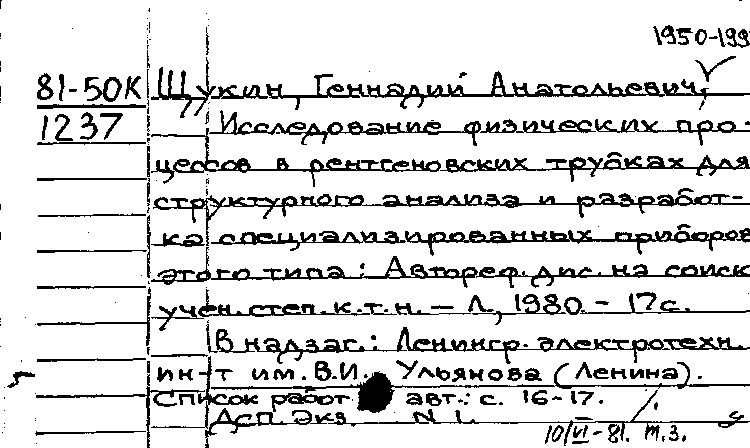 1950-199
81-50К Щукин, Геннадий Анатольевич,
1237 Исследование физических про-
цессов в рентгеновских трубках для
структурного анализа и разработ-
ка специализированных приборов
этого типа: Автореф. дис. на соиск
учен. степ. к.т.н. — Л., 1980. - 17с.
В надзаг.: Ленингр. электротехн.
ин-т им. В.И. Ульянова (Ленина).
Список работ авт.: с. 16-17.
Дсп. Экз. N 1.
10/VI-81. т.3.